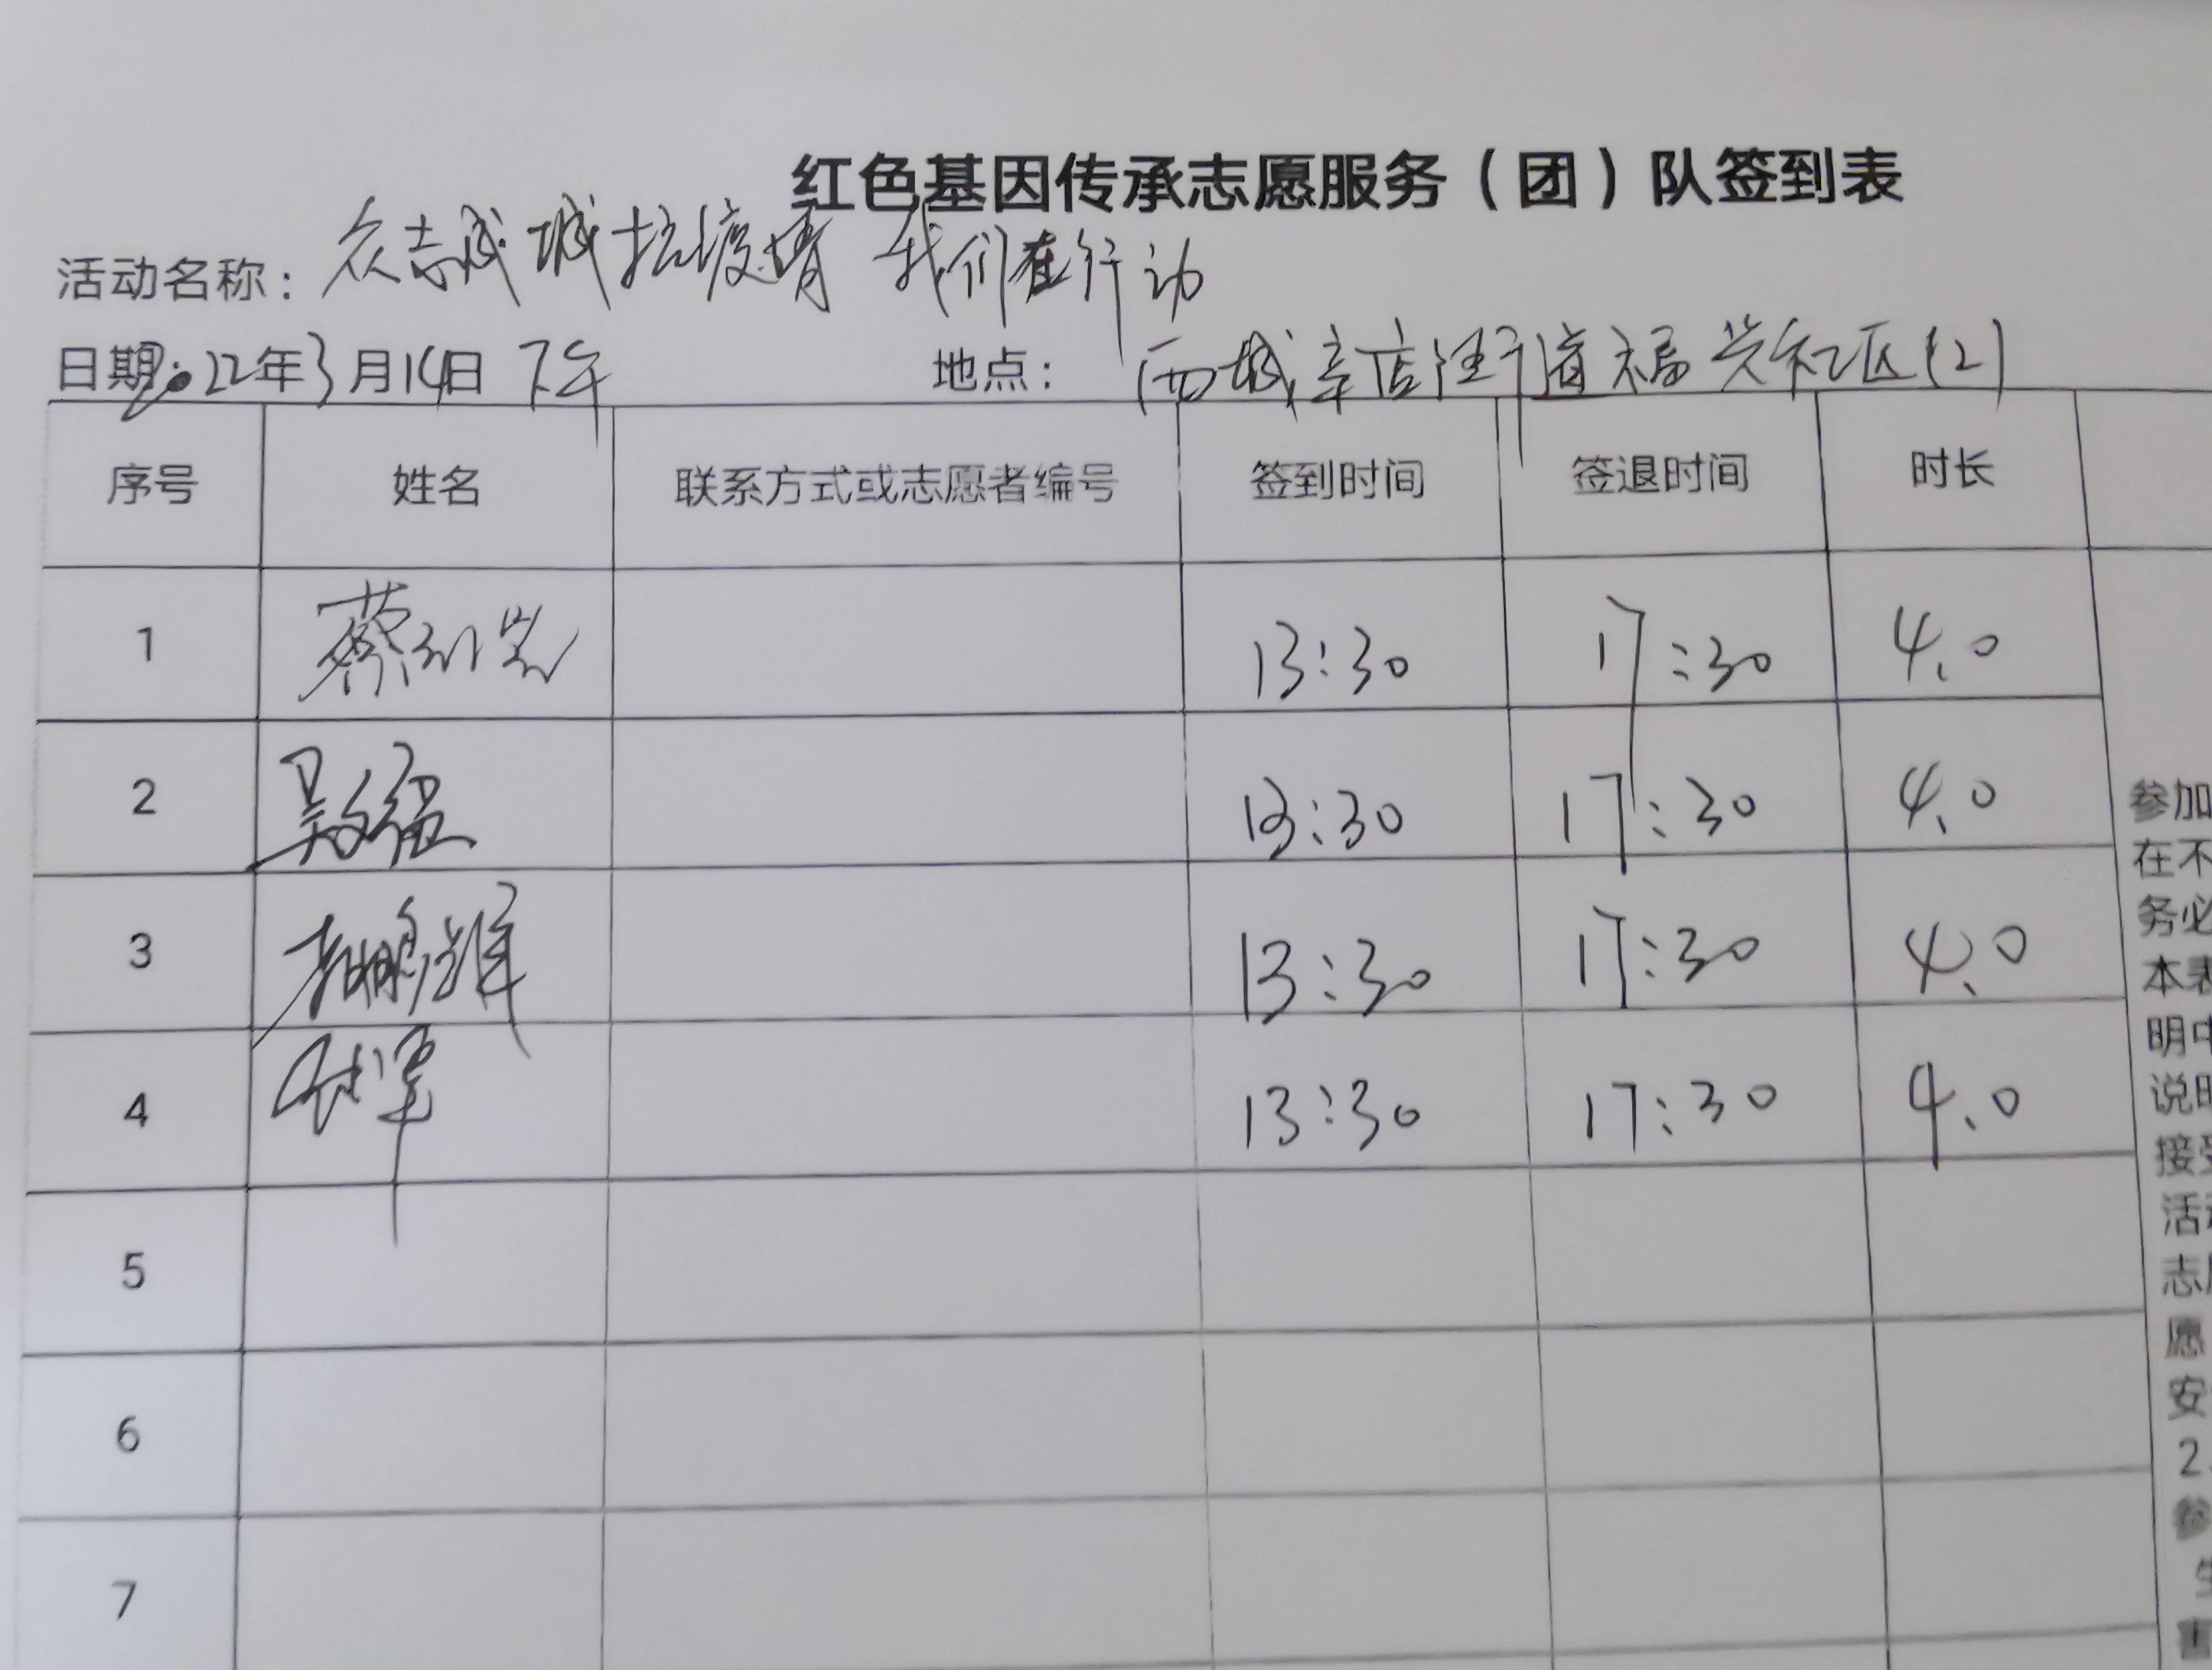 红色基因传承志愿服务（团）队签到表
活动名称：众志成城抗疫情 我们在行动
日期：2022年3月14日 下午 地点：西城辛店街道福兴社区(2)
序号 姓名 联系方式或志愿者编号 签到时间 签退时间 时长
1 蔡 13:30 17:30 4.0
2 吴 13:30 17:30 4.0
3 13:30 17:30 4.0
4 13:30 17:30 4.0
5
6
7
参加
在不
务必
本表
明中
说明
接受
活动
志愿
愿
安
2
参
生
害